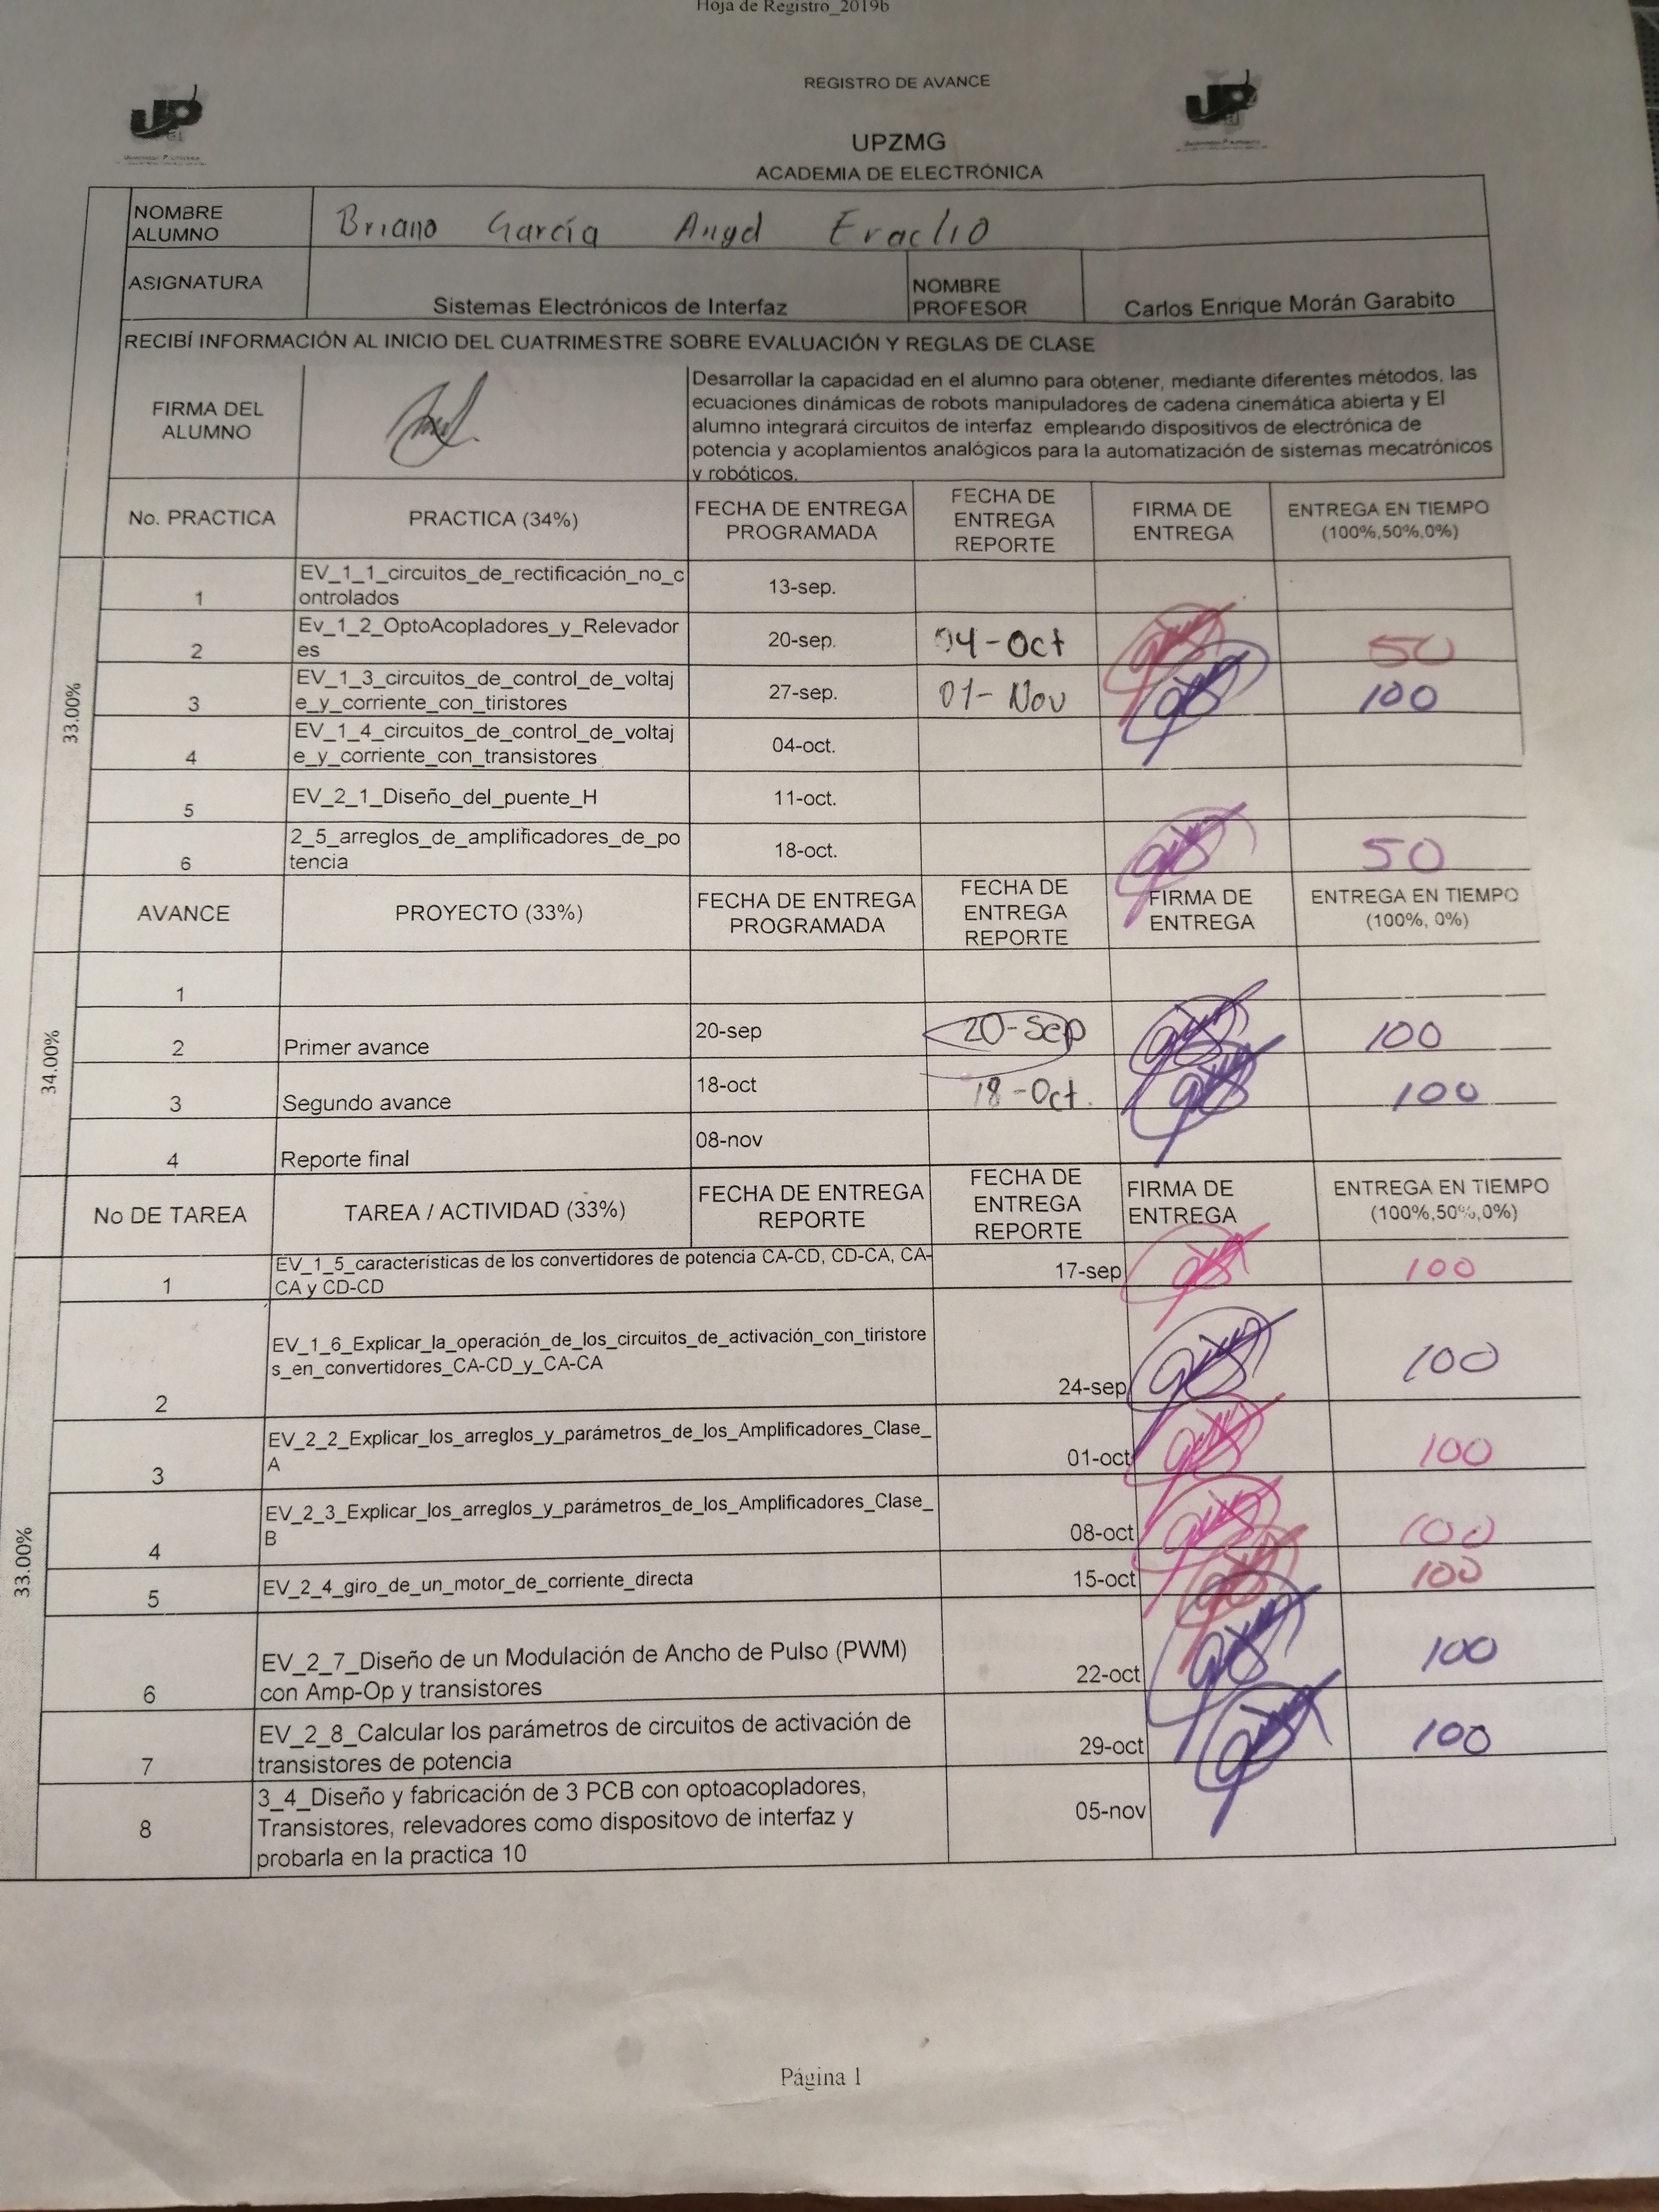 Hoja de Registro_2019b
REGISTRO DE AVANCE
UPZMG
ACADEMIA DE ELECTRÓNICA
NOMBRE ALUMNO Briano García Angel Eraclio
ASIGNATURA Sistemas Electrónicos de Interfaz NOMBRE PROFESOR Carlos Enrique Morán Garabito
RECIBÍ INFORMACIÓN AL INICIO DEL CUATRIMESTRE SOBRE EVALUACIÓN Y REGLAS DE CLASE
FIRMA DEL ALUMNO
Desarrollar la capacidad en el alumno para obtener, mediante diferentes métodos, las
ecuaciones dinámicas de robots manipuladores de cadena cinemática abierta y El
alumno integrará circuitos de interfaz empleando dispositivos de electrónica de
potencia y acoplamientos analógicos para la automatización de sistemas mecatrónicos
y robóticos.
No. PRACTICA PRACTICA (34%) FECHA DE ENTREGA PROGRAMADA FECHA DE ENTREGA REPORTE FIRMA DE ENTREGA ENTREGA EN TIEMPO (100%,50%,0%)
33.00%
1 EV_1_1_circuitos_de_rectificación_no_c
ontrolados 13-sep.
2 Ev_1_2_OptoAcopladores_y_Relevador
es 20-sep. 04-Oct 50
3 EV_1_3_circuitos_de_control_de_voltaj
e_y_corriente_con_tiristores 27-sep. 01-Nov 100
4 EV_1_4_circuitos_de_control_de_voltaj
e_y_corriente_con_transistores 04-oct.
5 EV_2_1_Diseño_del_puente_H 11-oct.
6 2_5_arreglos_de_amplificadores_de_po
tencia 18-oct. 50
AVANCE PROYECTO (33%) FECHA DE ENTREGA PROGRAMADA FECHA DE ENTREGA REPORTE FIRMA DE ENTREGA ENTREGA EN TIEMPO (100%, 0%)
34.00%
1
2 Primer avance 20-sep 20-Sep 100
3 Segundo avance 18-oct 18-Oct. 100
4 Reporte final 08-nov
No DE TAREA TAREA / ACTIVIDAD (33%) FECHA DE ENTREGA REPORTE FECHA DE ENTREGA REPORTE FIRMA DE ENTREGA ENTREGA EN TIEMPO (100%,50%,0%)
33.00%
1 EV_1_5_características de los convertidores de potencia CA-CD, CD-CA, CA-
CA y CD-CD 17-sep 100
2 EV_1_6_Explicar_la_operación_de_los_circuitos_de_activación_con_tiristore
s_en_convertidores_CA-CD_y_CA-CA 24-sep 100
3 EV_2_2_Explicar_los_arreglos_y_parámetros_de_los_Amplificadores_Clase_
A 01-oct 100
4 EV_2_3_Explicar_los_arreglos_y_parámetros_de_los_Amplificadores_Clase_
B 08-oct 100
5 EV_2_4_giro_de_un_motor_de_corriente_directa 15-oct 100
6 EV_2_7_Diseño de un Modulación de Ancho de Pulso (PWM)
con Amp-Op y transistores 22-oct 100
7 EV_2_8_Calcular los parámetros de circuitos de activación de
transistores de potencia 29-oct 100
8 3_4_Diseño y fabricación de 3 PCB con optoacopladores,
Transistores, relevadores como dispositovo de interfaz y
probarla en la practica 10 05-nov
Página 1